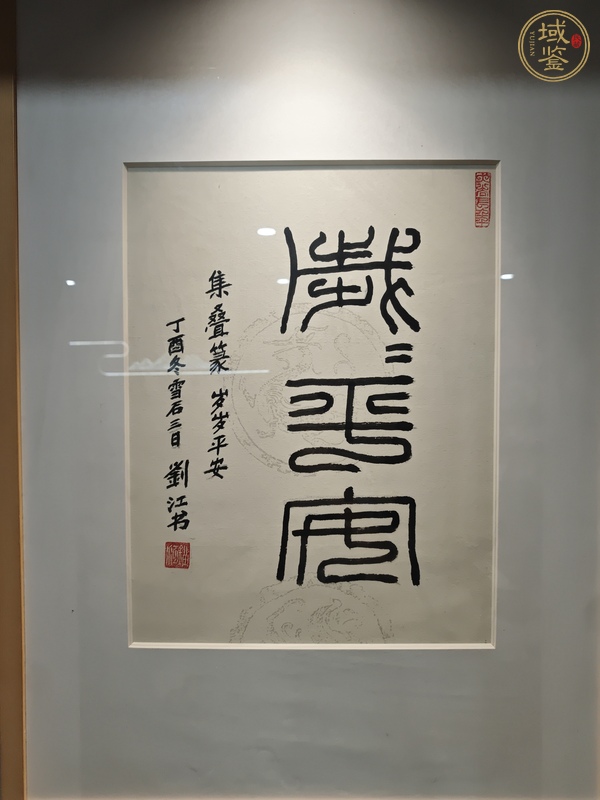 歲〻平安
集叠篆 岁岁平安
丁酉冬雪石三日 劉江书
域鉴
YUJIAN